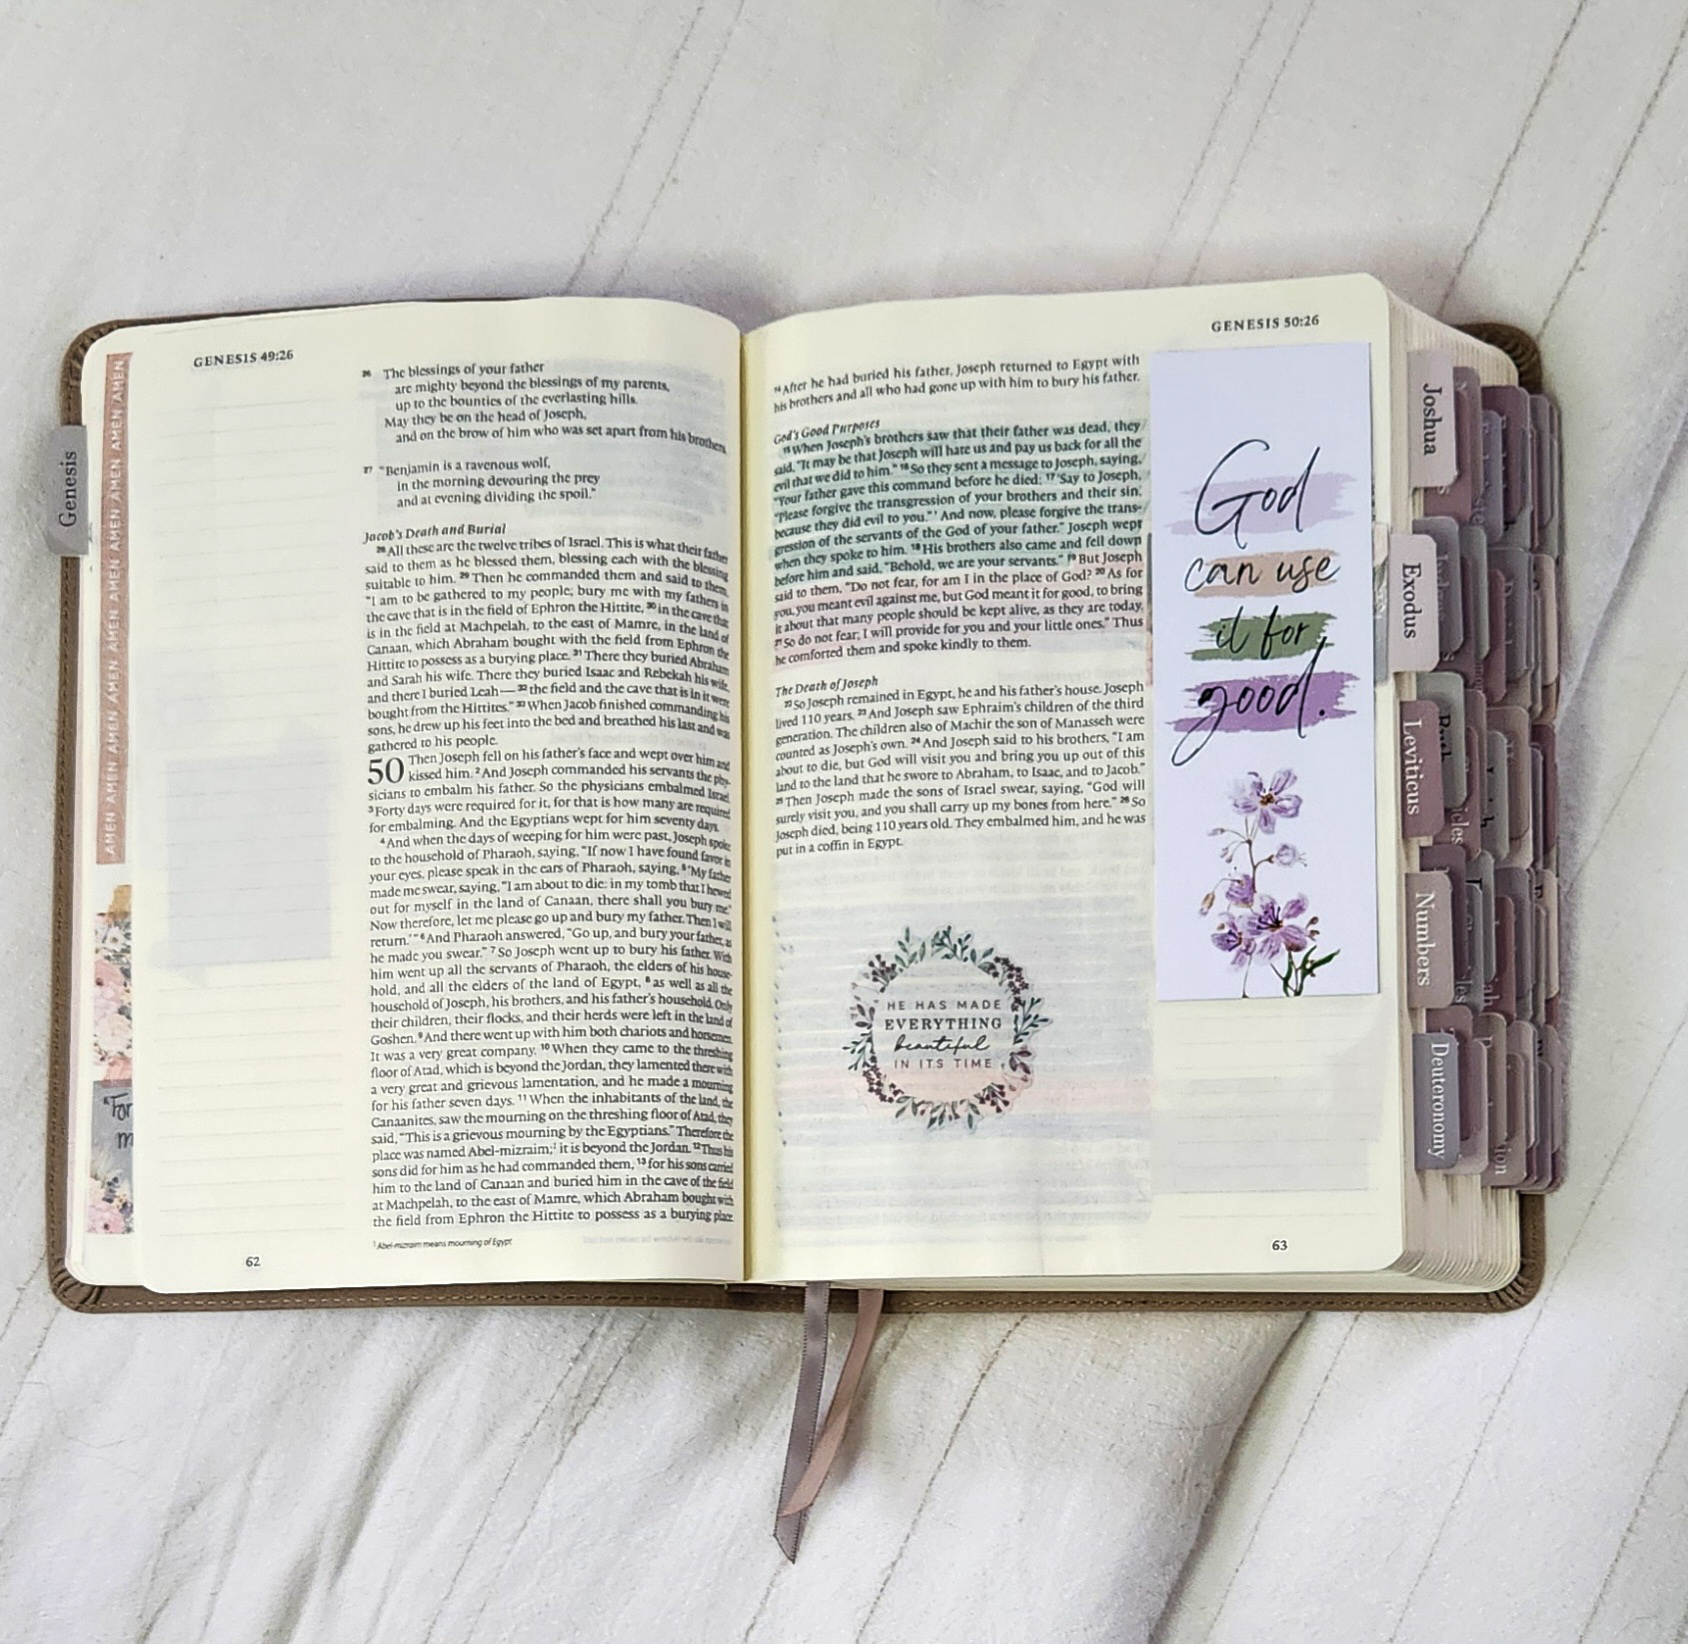 GENESIS 49:26
Genesis
AMEN AMEN AMEN AMEN AMEN AMEN AMEN AMEN AMEN AMEN
"For
m
26 The blessings of your father
are mighty beyond the blessings of my parents,
up to the bounties of the everlasting hills.
May they be on the head of Joseph,
and on the brow of him who was set apart from his brothers
27 "Benjamin is a ravenous wolf,
in the morning devouring the prey
and at evening dividing the spoil."
Jacob's Death and Burial
28 All these are the twelve tribes of Israel. This is what their father
said to them as he blessed them, blessing each with the blessing
suitable to him. 29 Then he commanded them and said to them,
"I am to be gathered to my people; bury me with my fathers in
the cave that is in the field of Ephron the Hittite, 30 in the cave that
is in the field at Machpelah, to the east of Mamre, in the land of
Canaan, which Abraham bought with the field from Ephron the
Hittite to possess as a burying place. 31 There they buried Abraham
and Sarah his wife. There they buried Isaac and Rebekah his wife,
and there I buried Leah— 32 the field and the cave that is in it were
bought from the Hittites." 33 When Jacob finished commanding his
sons, he drew up his feet into the bed and breathed his last and was
gathered to his people.
50 Then Joseph fell on his father's face and wept over him and
kissed him. 2 And Joseph commanded his servants the phy-
sicians to embalm his father. So the physicians embalmed Israel.
3 Forty days were required for it, for that is how many are required
for embalming. And the Egyptians wept for him seventy days.
4 And when the days of weeping for him were past, Joseph spoke
to the household of Pharaoh, saying, "If now I have found favor in
your eyes, please speak in the ears of Pharaoh, saying, 5 'My father
made me swear, saying, "I am about to die: in my tomb that I hewed
out for myself in the land of Canaan, there shall you bury me."
Now therefore, let me please go up and bury my father. Then I will
return.'" 6 And Pharaoh answered, "Go up, and bury your father, as
he made you swear." 7 So Joseph went up to bury his father. With
him went up all the servants of Pharaoh, the elders of his house-
hold, and all the elders of the land of Egypt, 8 as well as all the
household of Joseph, his brothers, and his father's household. Only
their children, their flocks, and their herds were left in the land of
Goshen. 9 And there went up with him both chariots and horsemen.
It was a very great company. 10 When they came to the threshing
floor of Atad, which is beyond the Jordan, they lamented there with
a very great and grievous lamentation, and he made a mourning
for his father seven days. 11 When the inhabitants of the land, the
Canaanites, saw the mourning on the threshing floor of Atad, they
said, "This is a grievous mourning by the Egyptians." Therefore the
place was named Abel-mizraim;1 it is beyond the Jordan. 12 Thus his
sons did for him as he had commanded them, 13 for his sons carried
him to the land of Canaan and buried him in the cave of the field
at Machpelah, to the east of Mamre, which Abraham bought with
the field from Ephron the Hittite to possess as a burying place.
1 Abel-mizraim means mourning of Egypt
62
GENESIS 50:26
14 After he had buried his father, Joseph returned to Egypt with
his brothers and all who had gone up with him to bury his father.
God's Good Purposes
15 When Joseph's brothers saw that their father was dead, they
said, "It may be that Joseph will hate us and pay us back for all the
evil that we did to him." 16 So they sent a message to Joseph, saying,
"Your father gave this command before he died: 17 'Say to Joseph,
"Please forgive the transgression of your brothers and their sin,
because they did evil to you."' And now, please forgive the trans-
gression of the servants of the God of your father." Joseph wept
when they spoke to him. 18 His brothers also came and fell down
before him and said, "Behold, we are your servants." 19 But Joseph
said to them, "Do not fear, for am I in the place of God? 20 As for
you, you meant evil against me, but God meant it for good, to bring
it about that many people should be kept alive, as they are today.
21 So do not fear; I will provide for you and your little ones." Thus
he comforted them and spoke kindly to them.
The Death of Joseph
22 So Joseph remained in Egypt, he and his father's house. Joseph
lived 110 years. 23 And Joseph saw Ephraim's children of the third
generation. The children also of Machir the son of Manasseh were
counted as Joseph's own. 24 And Joseph said to his brothers, "I am
about to die, but God will visit you and bring you up out of this
land to the land that he swore to Abraham, to Isaac, and to Jacob."
25 Then Joseph made the sons of Israel swear, saying, "God will
surely visit you, and you shall carry up my bones from here." 26 So
Joseph died, being 110 years old. They embalmed him, and he was
put in a coffin in Egypt.
HE HAS MADE
EVERYTHING
beautiful
IN ITS TIME
God
can use
it for
good.
63
Joshua
Exodus
Leviticus
Numbers
Deuteronomy